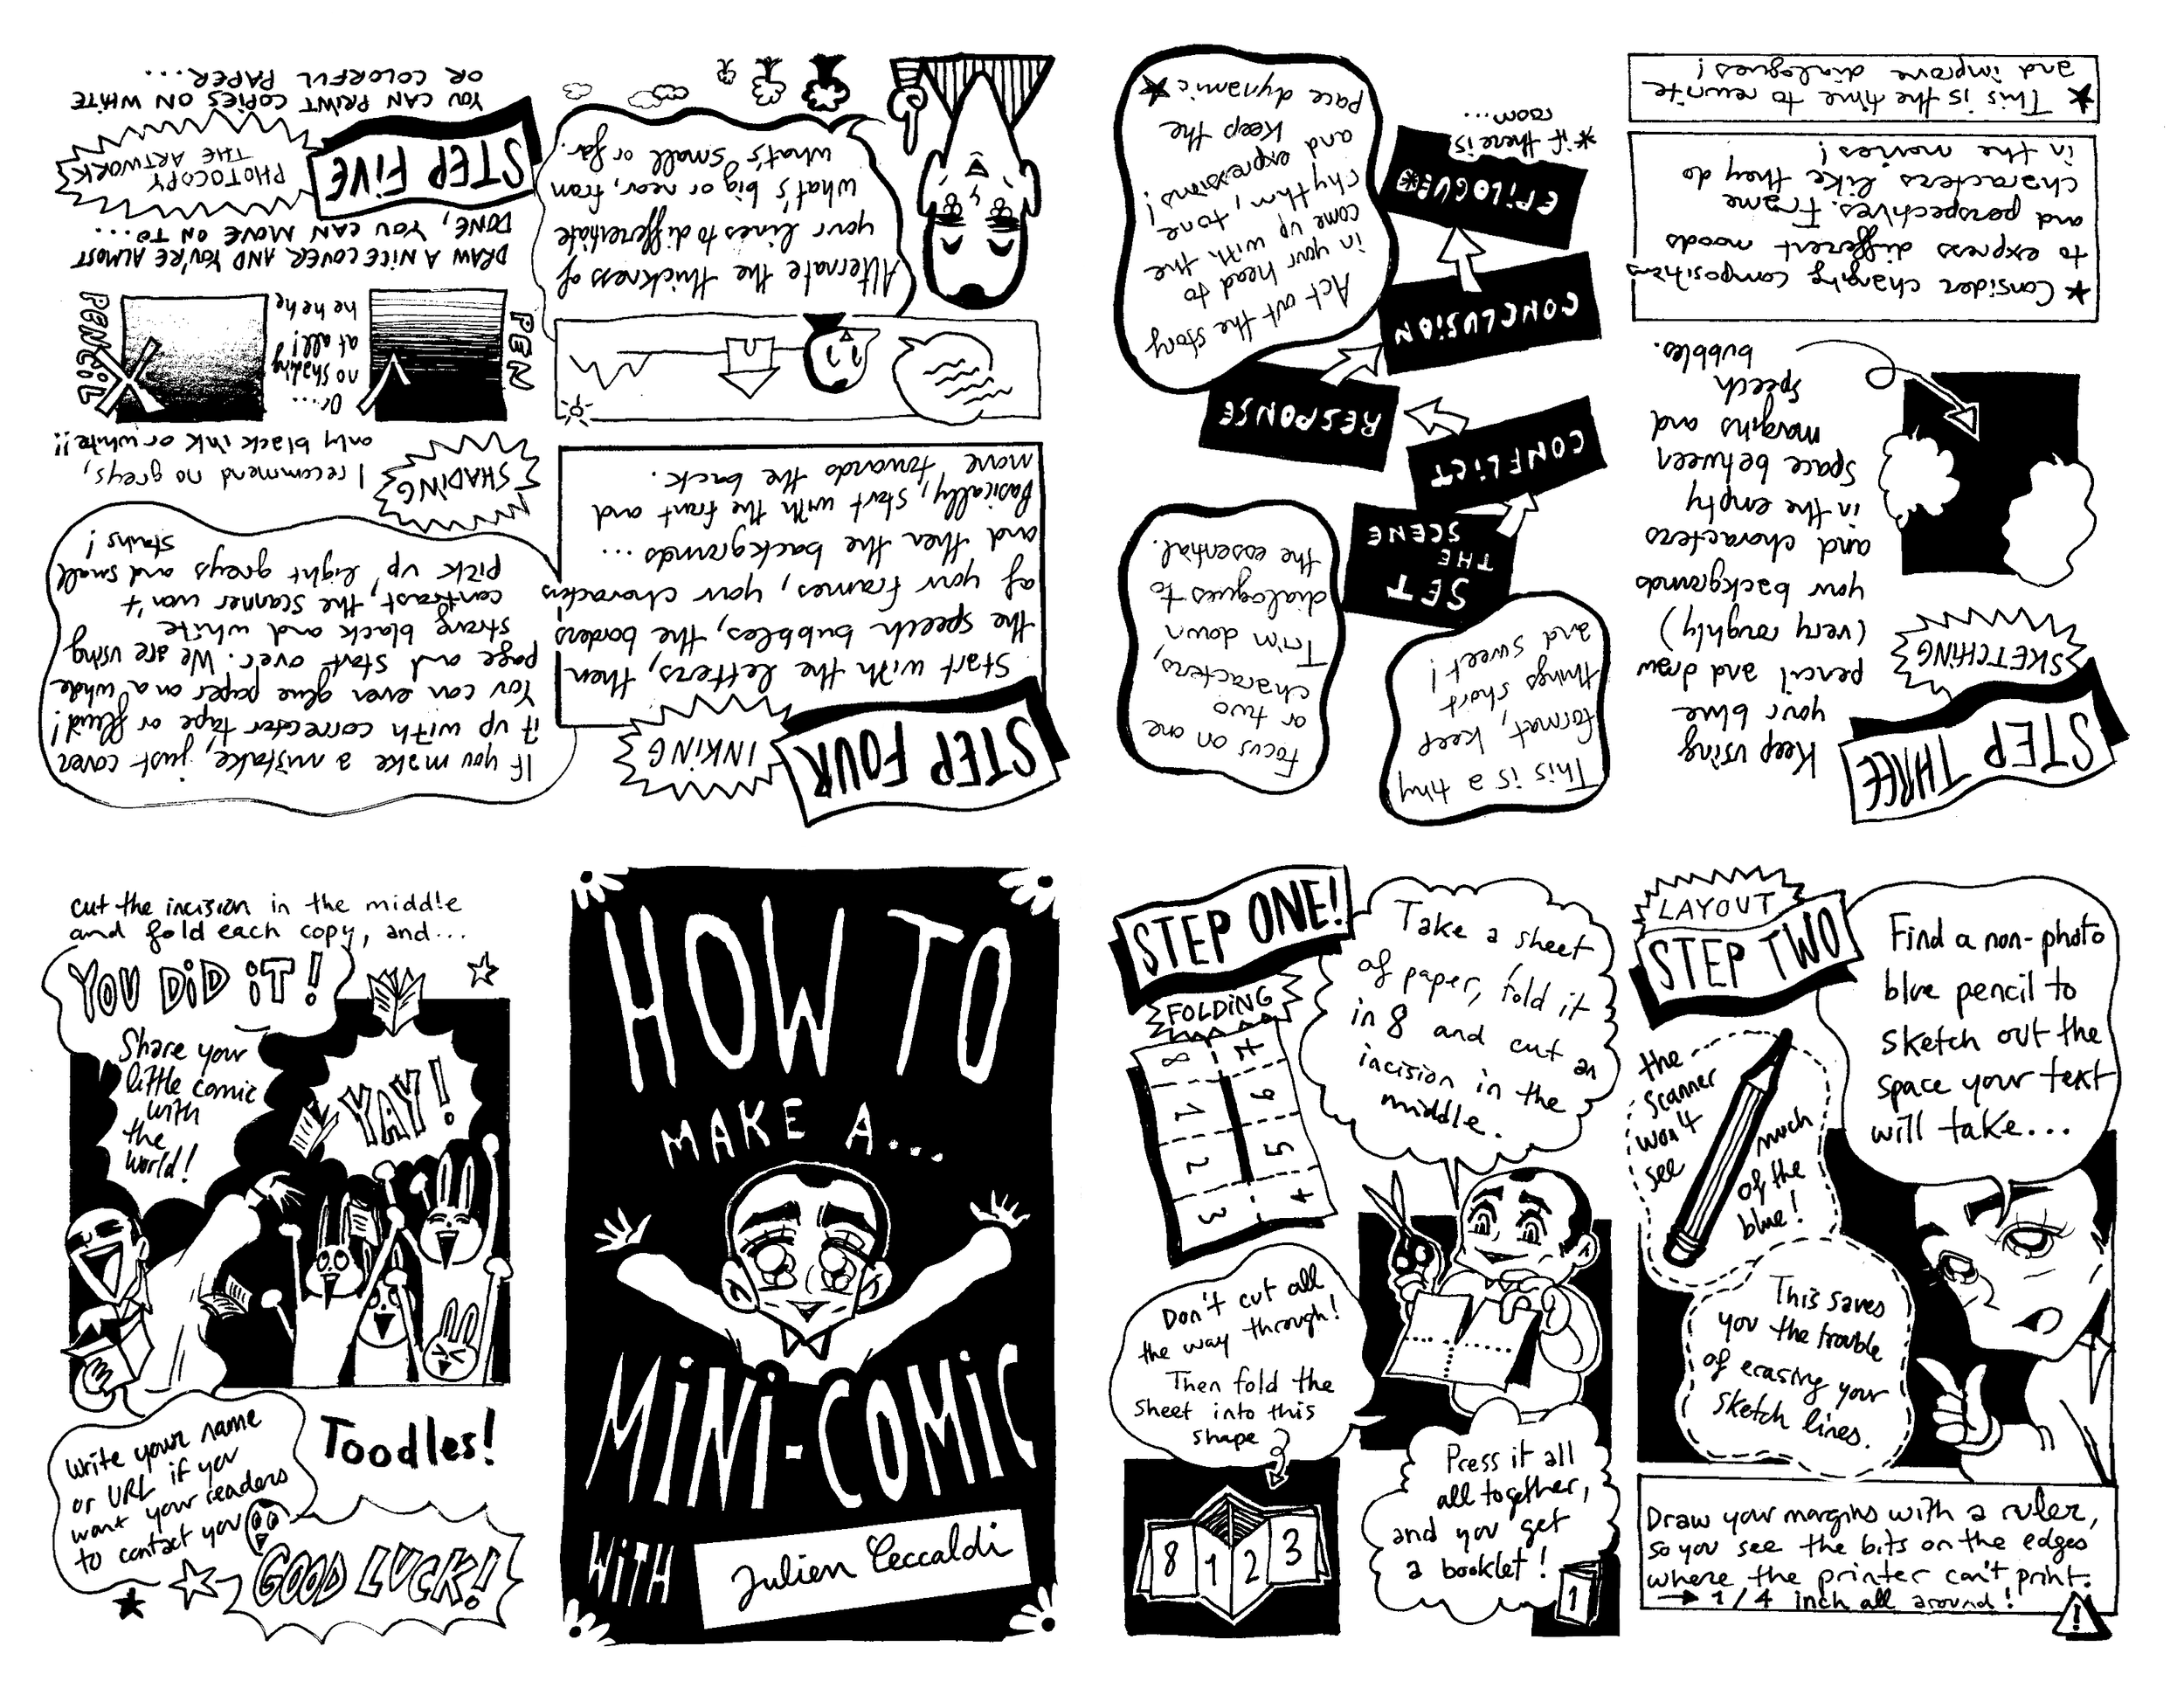 HOW TO
MAKE A...
MINI-COMIC
WITH
Julien Ceccaldi
STEP ONE!
FOLDING
Take a sheet
of paper, fold it
in 8 and cut an
incision in the
middle.
8 7
1 6
2 5
3 4
Don't cut all
the way through!
Then fold the
sheet into this
shape
8 1 2 3
Press it all
all together,
and you get
a booklet!
1
LAYOUT
STEP TWO
Find a non-photo
blue pencil to
sketch out the
space your text
will take...
the
scanner
won't
see
much
of the
blue!
This saves
you the trouble
of erasing your
sketch lines.
Draw your margins with a ruler,
so you see the bits on the edges
where the printer can't print.
→ 1/4 inch all around!
!
STEP THREE
SKETCHING
Keep using
your blue
pencil and draw
(very roughly)
your backgrounds
and characters
in the empty
space between
margins and
speech
bubbles.
★ Consider changing compositions
to express different moods
and perspectives. Frame
characters like they do
in the movies!
★ This is the time to rewrite
and improve dialogues!
This is a tiny
format, keep
things short
and sweet!
Focus on one
or two
characters,
Trim down
dialogues to
the essential.
SET
THE
SCENE
CONFLICT
RESPONSE
CONCLUSION
EPILOGUE*
* if there is
room...
Act out the story
in your head to
come up with the
rhythm, tone
and expressions!
and keep the
pace dynamic ★
STEP FOUR
INKING
Start with the letters, then
the speech bubbles, the borders
of your frames, your characters
and then the backgrounds...
Basically, start with the front and
move towards the back.
Alternate the thickness of
your lines to differentiate
what's big or near, from
what's small or far.
If you make a mistake, just cover
it up with corrector tape or fluid!
You can even glue paper on a whole
page and start over. We are using
strong black and white
contrast, the scanner won't
pick up light greys and small
stains!
SHADING
I recommend no greys,
only black ink or white!!
PEN
Or...
no shading
at all!
he hehe
PENCIL
DRAW A NICE COVER AND YOU'RE ALMOST
DONE, YOU CAN MOVE ON TO...
STEP FIVE
PHOTOCOPY
THE ARTWORK
YOU CAN PRINT COPIES ON WHITE
OR COLORFUL PAPER...
cut the incision in the middle
and fold each copy, and...
YOU DID IT!
Share your
little comic
with
the
world!
YAY!
Write your name
or URL if you
want your readers
to contact you
Toodles!
GOOD LUCK!